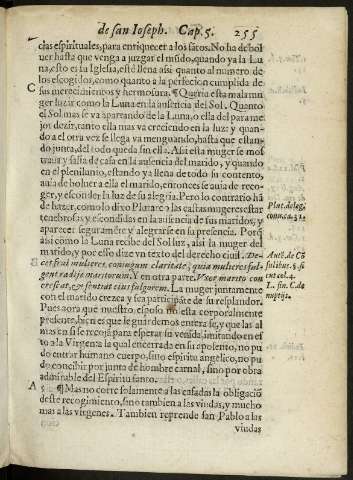 de san Ioseph. Cap. 5. 255
cias espirituales, para enriquecer a los satos. No ha de bol
uer hasta que venga a juzgar el mũdo, quando ya la Lu
na, esto es la Iglesia, esté llena assi quanto al numero de
los escogidos, como quanto a la perfecion cumplida de
C sus merecimientos y hermosura. ¶ Queria esta mala mu
ger luzir como la Luna en la ausencia del Sol. Quanto
el Sol mas se va apartando de la Luna, o ella del para me
jor dezir, tanto ella mas va creciendo en la luz: y quan-
do a el otra vez se llega va menguando, hasta que estan-
do junta, del todo queda sin ella. Assi esta muger se mos
traua y salia de casa en la ausencia del marido, y quando
en el plenilunio, estando ya llena de todo su contento,
auia de boluer a ella el marido, entonces se auia de reco-
ger, y esconder la luz de su alegria. Pero lo contrario hã
de hazer, como lo dixo Plutarco: las castas mugeres estar
tenebrosas y escondidas en la ausencia de sus maridos, y
aparecer seguramẽte y alegrarse en su presencia. Porq̃
assi como la Luna recibe del Sol luz, assi la muger del
marido, y por esso dize vn texto del derecho ciuil. De-
cet frui mulieres, coniugum claritate; quia mulieres ful-
gent radijs maritorum. Y en otra parte. Vxor marito con
crescat, & sentiat eius fulgorem. La muger juntamente
con el marido crezca y sea participãte de su resplandor.
Pues aora que nuestro esposo no està corporalmente
presente, biẽ es que se guardemos entera fe, y que las al
mas en si se recojã para esperar su venida imitando en es
to a la Virgen a la qual encerrada en su aposento, no pu
do entrar humano cuerpo, sino espiritu angelico, no pu
do concibir por junta de hombre carnal, sino por obra
admirable del Espiritu santo.
A 5 ¶ Mas no corre solamente a las casadas la obligaciõ
deste recogimiento, sino tambien a las viudas, y mucho
mas a las virgenes. Tambien reprende san Pablo a las
viudas
Plut. de leg.
connu. ca. 31.
Auth. de Cõ
sulibus. §. si
L. fin. C. de
nuptijs.